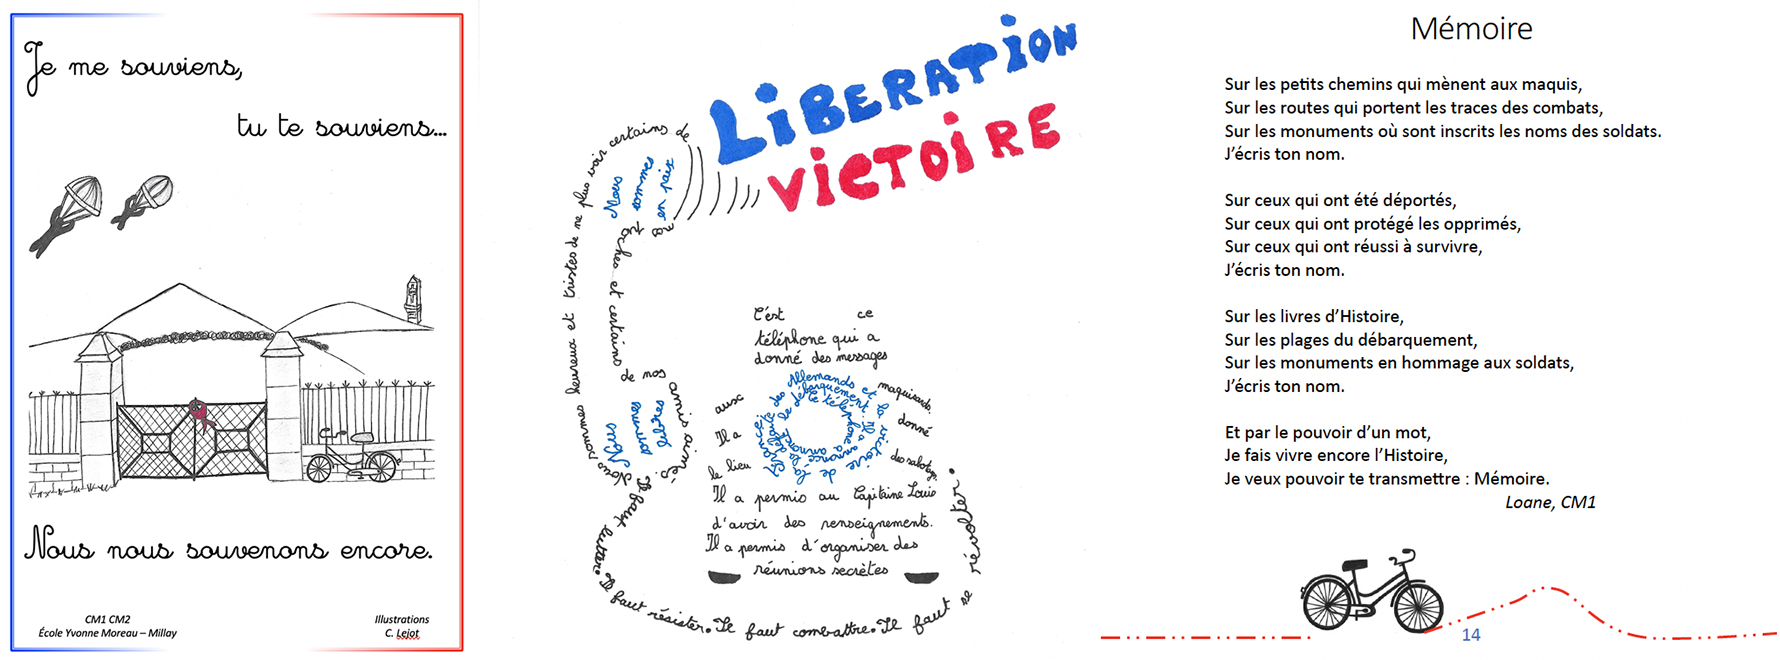 Je me souviens,
tu te souviens...
Nous nous souvenons encore.
CM1 CM2
École Yvonne Moreau – Millay
Illustrations
C. Lejot
LIBERATION
VICTOIRE
Nous sommes heureux et tristes de ne plus voir certains de
nos proches et certains
de nos amis aimés.
Nous
sommes
en paix
Nous
sommes
libres
C'est ce
téléphone qui a
donné des messages
aux maquisards.
Il a donné
le lieu des sabotages.
Il a permis au Capitaine Louis
d'avoir des renseignements.
Il a permis d'organiser des
réunions secrètes
Il faut lutter. Il faut résister. Il faut combattre. Il faut se révolter.
Mémoire
Sur les petits chemins qui mènent aux maquis,
Sur les routes qui portent les traces des combats,
Sur les monuments où sont inscrits les noms des soldats.
J'écris ton nom.
Sur ceux qui ont été déportés,
Sur ceux qui ont protégé les opprimés,
Sur ceux qui ont réussi à survivre,
J'écris ton nom.
Sur les livres d'Histoire,
Sur les plages du débarquement,
Sur les monuments en hommage aux soldats,
J'écris ton nom.
Et par le pouvoir d'un mot,
Je fais vivre encore l'Histoire,
Je veux pouvoir te transmettre : Mémoire.
Loane, CM1
14